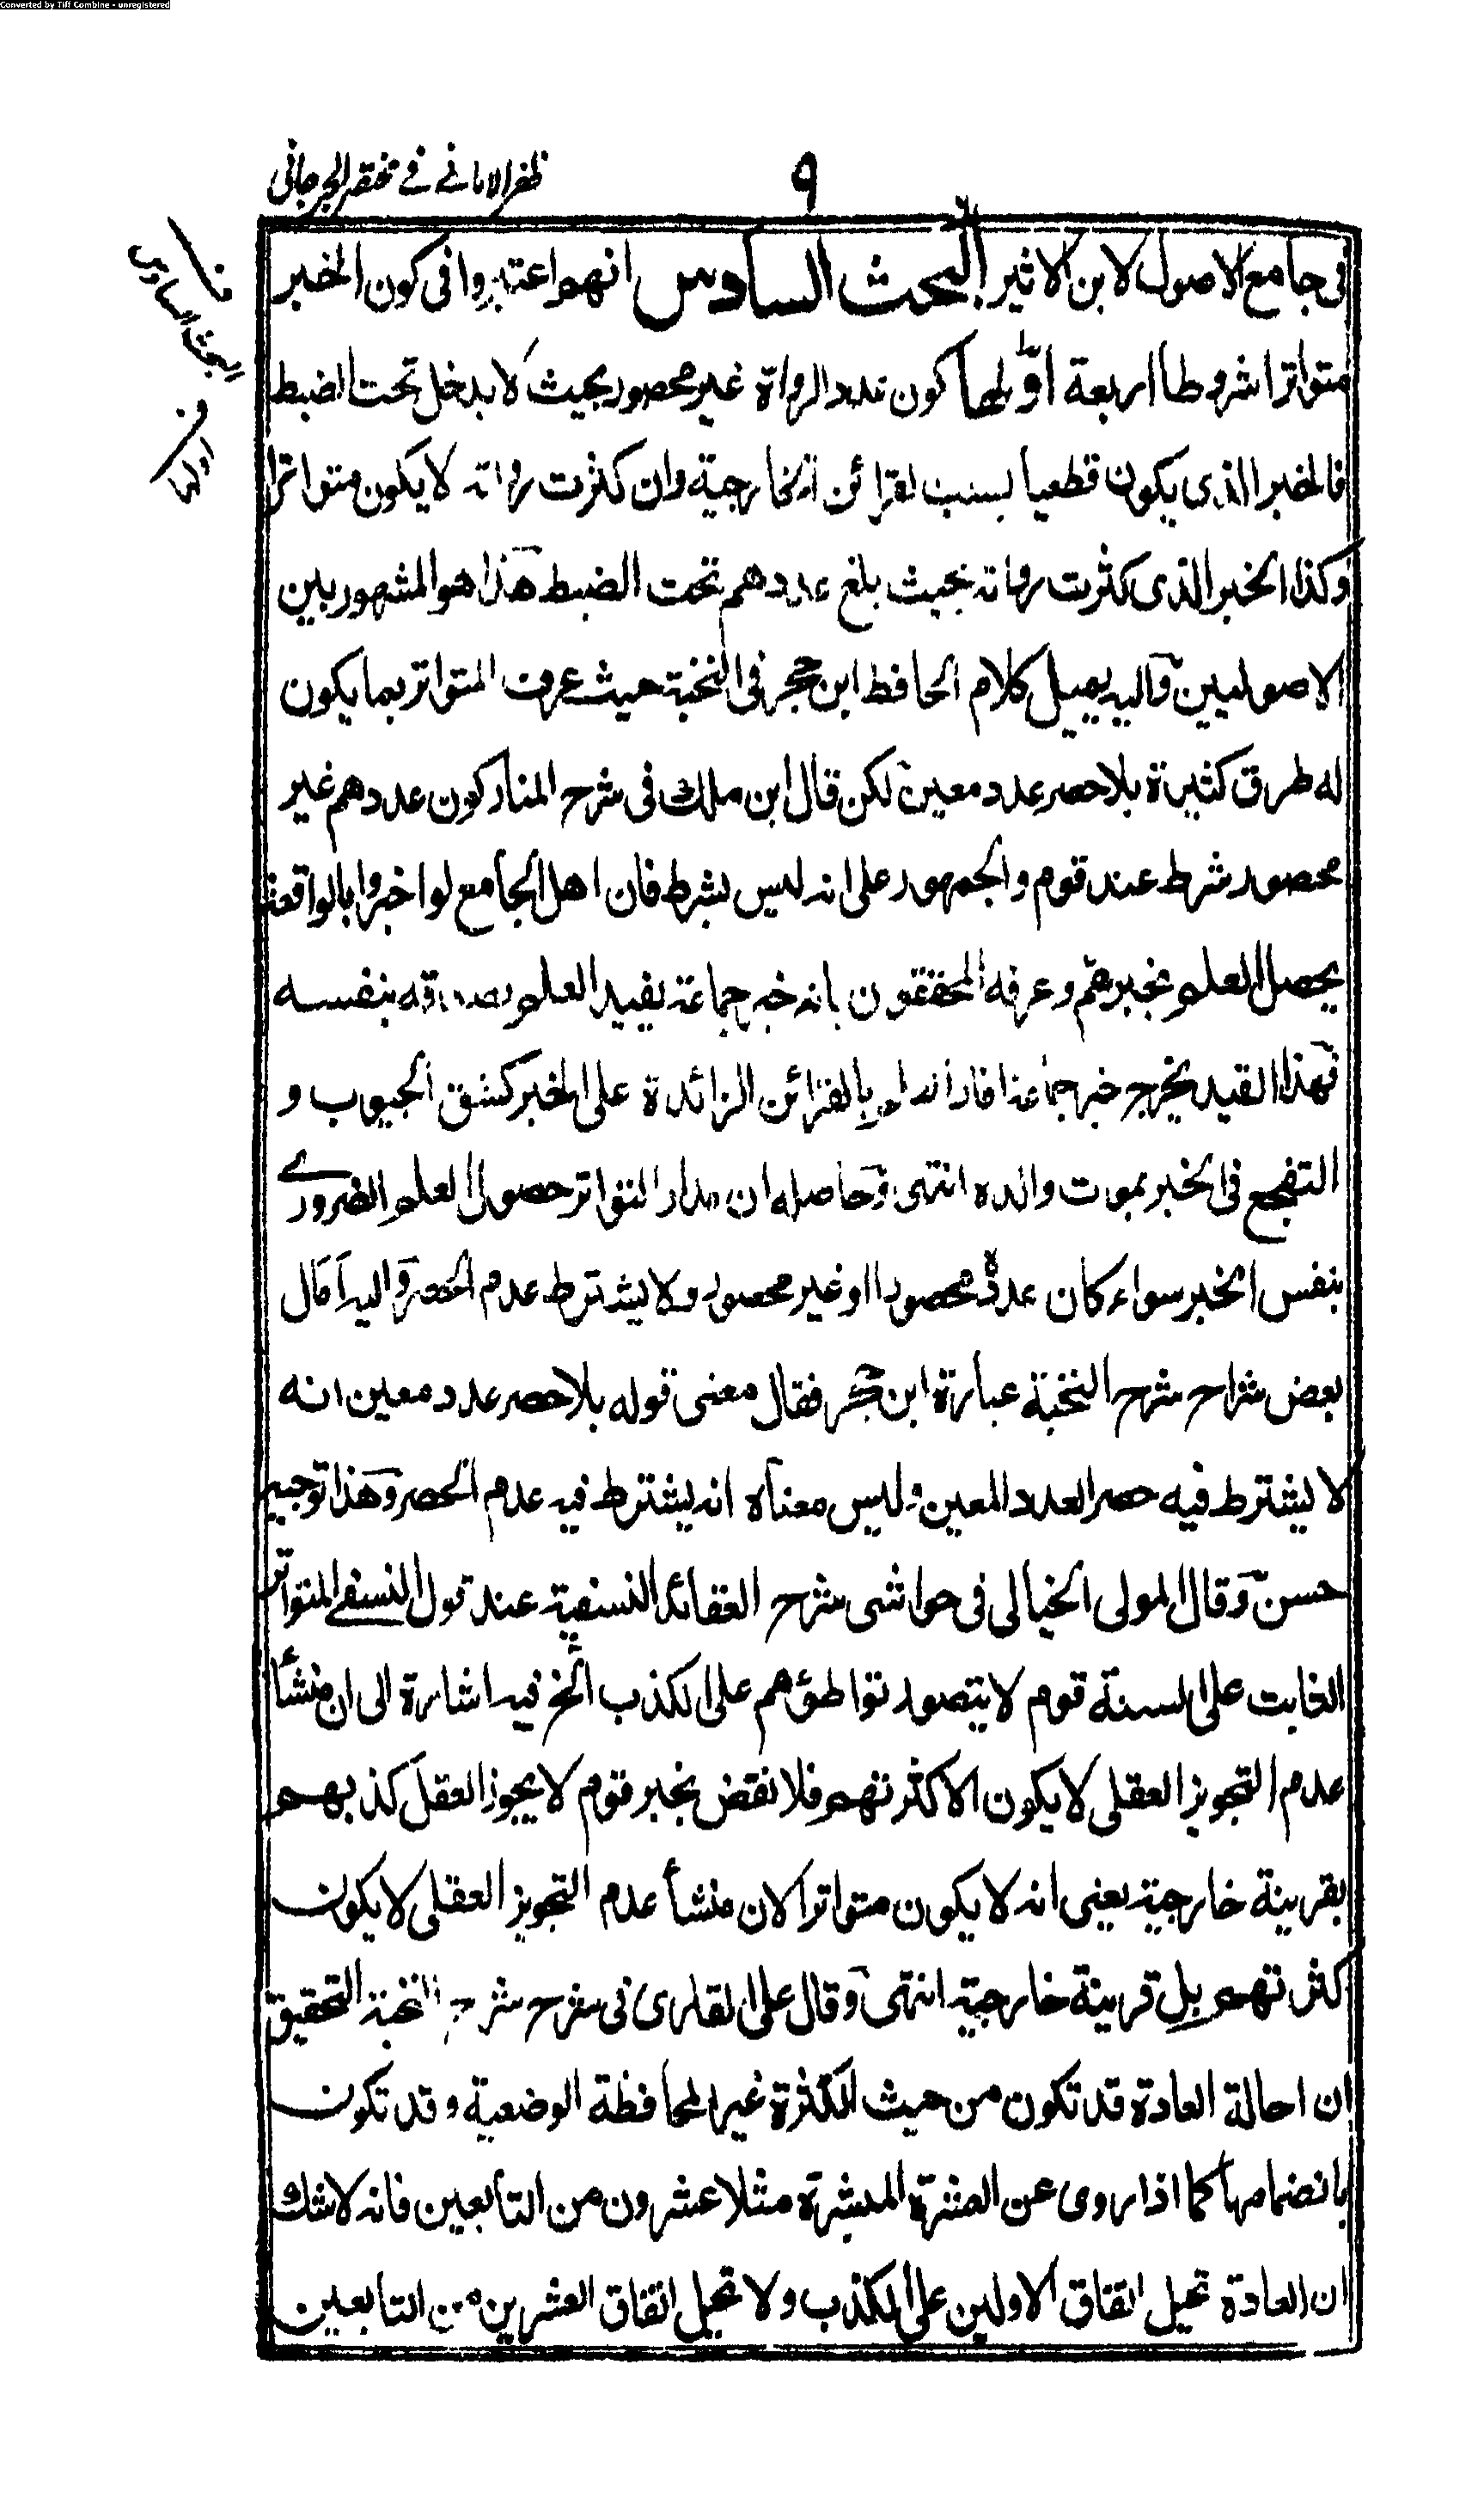 Converted by Tiff Combine - unregistered
٩
ظفر الامانے فے مختصر الجرجانی
فی جامع الاصول لابن الاثیر البحث السادس انهم اعتبروا فی کون الخبر
متواترا شروطا اربعة اولها کون عدد الرواة غیر محصور بحیث لا یدخل تحت الضبط
فالخبر الذی یکون قطعیا بسبب القرائن الخارجیة وان کثرت رواته لا یکون متواترا
وکذا الخبر الذی کثرت رواته بحیث بلغ عددهم تحت الضبط هذا هو المشهور بین
الاصولیین والیه یمیل کلام الحافظ ابن حجر فی النخبة حیث عرف المتواتر بما یکون
له طرق کثیرة بلا حصر عدد معین لکن قال ابن ملک فی شرح المنار کون عددهم غیر
محصور شرط عند قوم والجمهور علی انه لیس بشرط فان اهل الجامع لو اخبروا بالواقعة
یحصل العلم بخبرهم وعرفه المحققون بانه خبر جماعة یفید العلم بصدقه بنفسه
فهذا القید یخرج خبر جماعة افاد العلم بالقرائن الزائدة علی الخبر کشق الجیوب و
التفجع فی الخبر بموت والده انتهی وحاصله ان مدار التواتر حصول العلم الضروری
بنفس الخبر سواء کان عدده محصورا او غیر محصور ولا یشترط عدم الحصر والیه امال
بعض شراح شرح النخبة عبارة ابن حجر فقال معنی قوله بلا حصر عدد معین انه
لا یشترط فیه حصر العدد المعین ولیس معناه انه یشترط فیه عدم الحصر وهذا توجیه
حسن وقال المولی الخیالی فی حواشی شرح العقائد النسفیة عند قول النسفے المتواتر
الثابت علی السنة قوم لا یتصور تواطؤهم علی الکذب الخ فیه اشارة الی ان منشأ
عدم التجویز العقلی لا یکون الا کثرتهم فلا نقض بخبر قوم لا یجوز العقل کذبهم
بقرینة خارجیة یعنی انه لا یکون متواترا لان منشأ عدم التجویز العقلی لا یکون
کثرتهم بل قرینة خارجیة انتهی وقال علی القاری فی شرح شرح النخبة التحقیق
ان احالة العادة قد تکون من حیث الکثرة غیر المحافظة الوضعیة وقد تکون
بانضمامها کما اذا روی عن العشرة المبشرة مثلا عشرون من التابعین فانه لا شک
ان العادة تحیل اتفاق الاولین علی الکذب ولا تحیل اتفاق العشرین من التابعین
البحث السادس